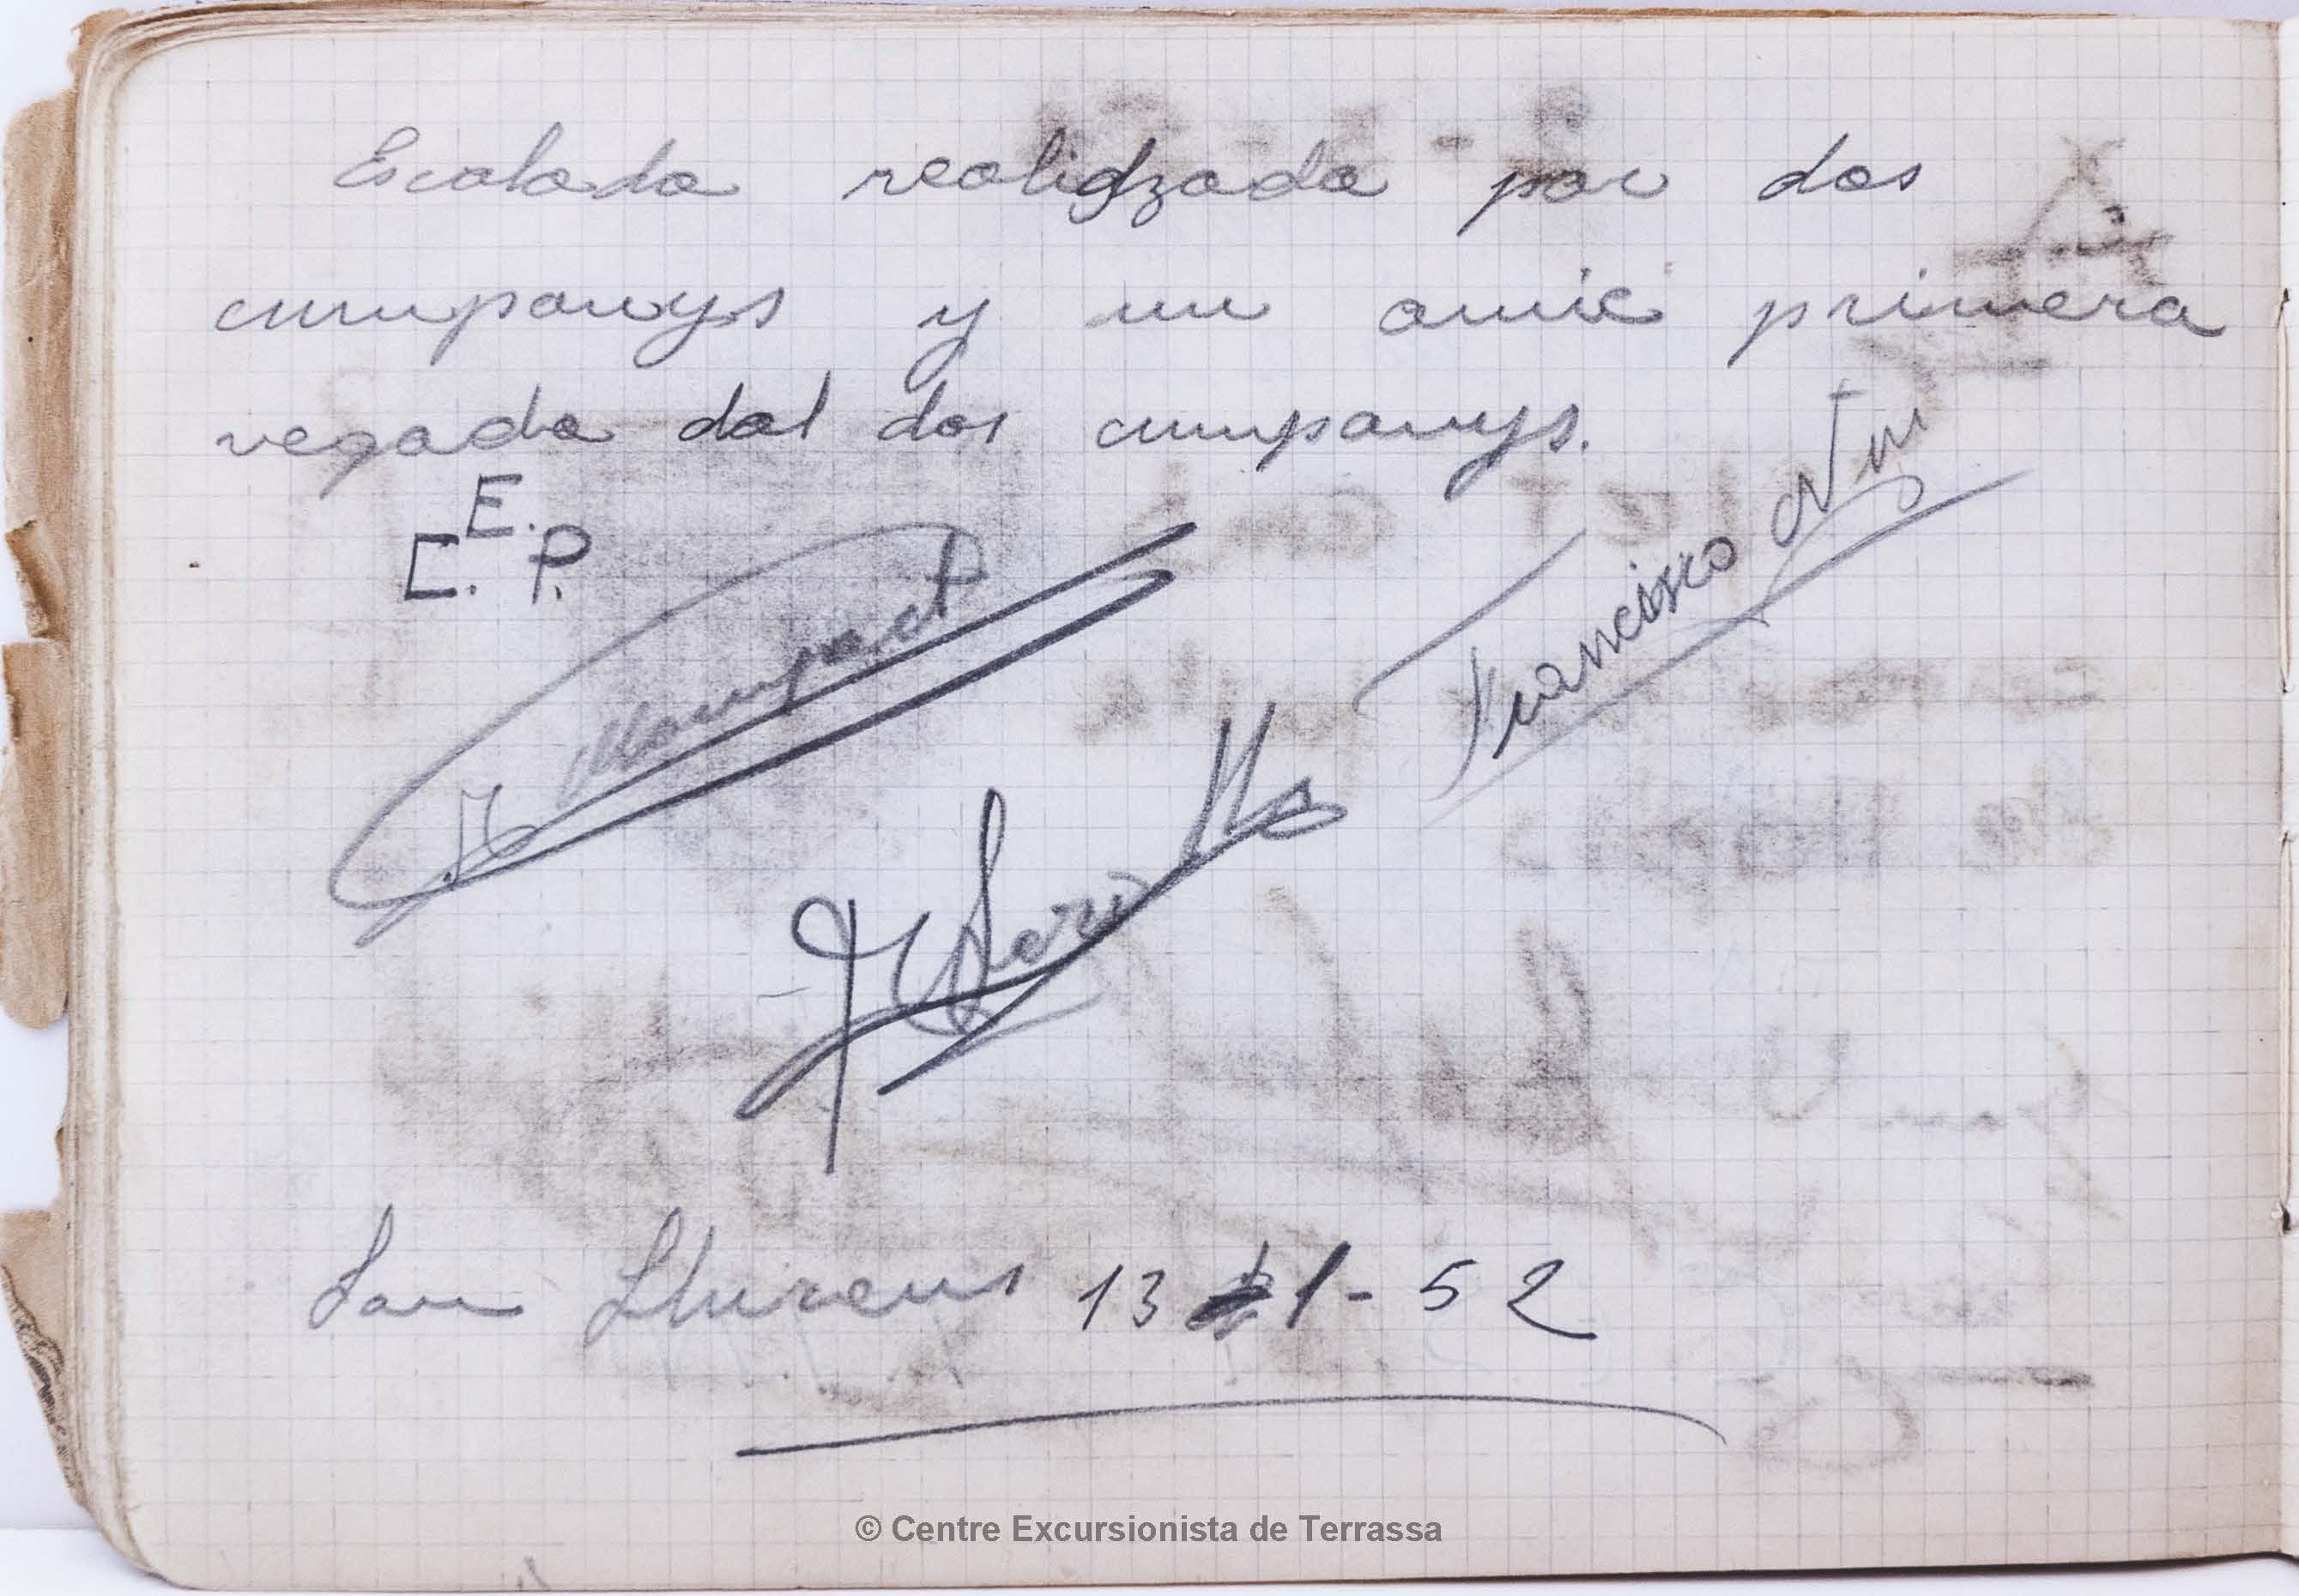 Escalada realidzada par dos
cumpanys y un amic primera
vegada dal dos cumpanys.
E.
C. P.
Francisco
San Llurens 13 1-52
© Centre Excursionista de Terrassa